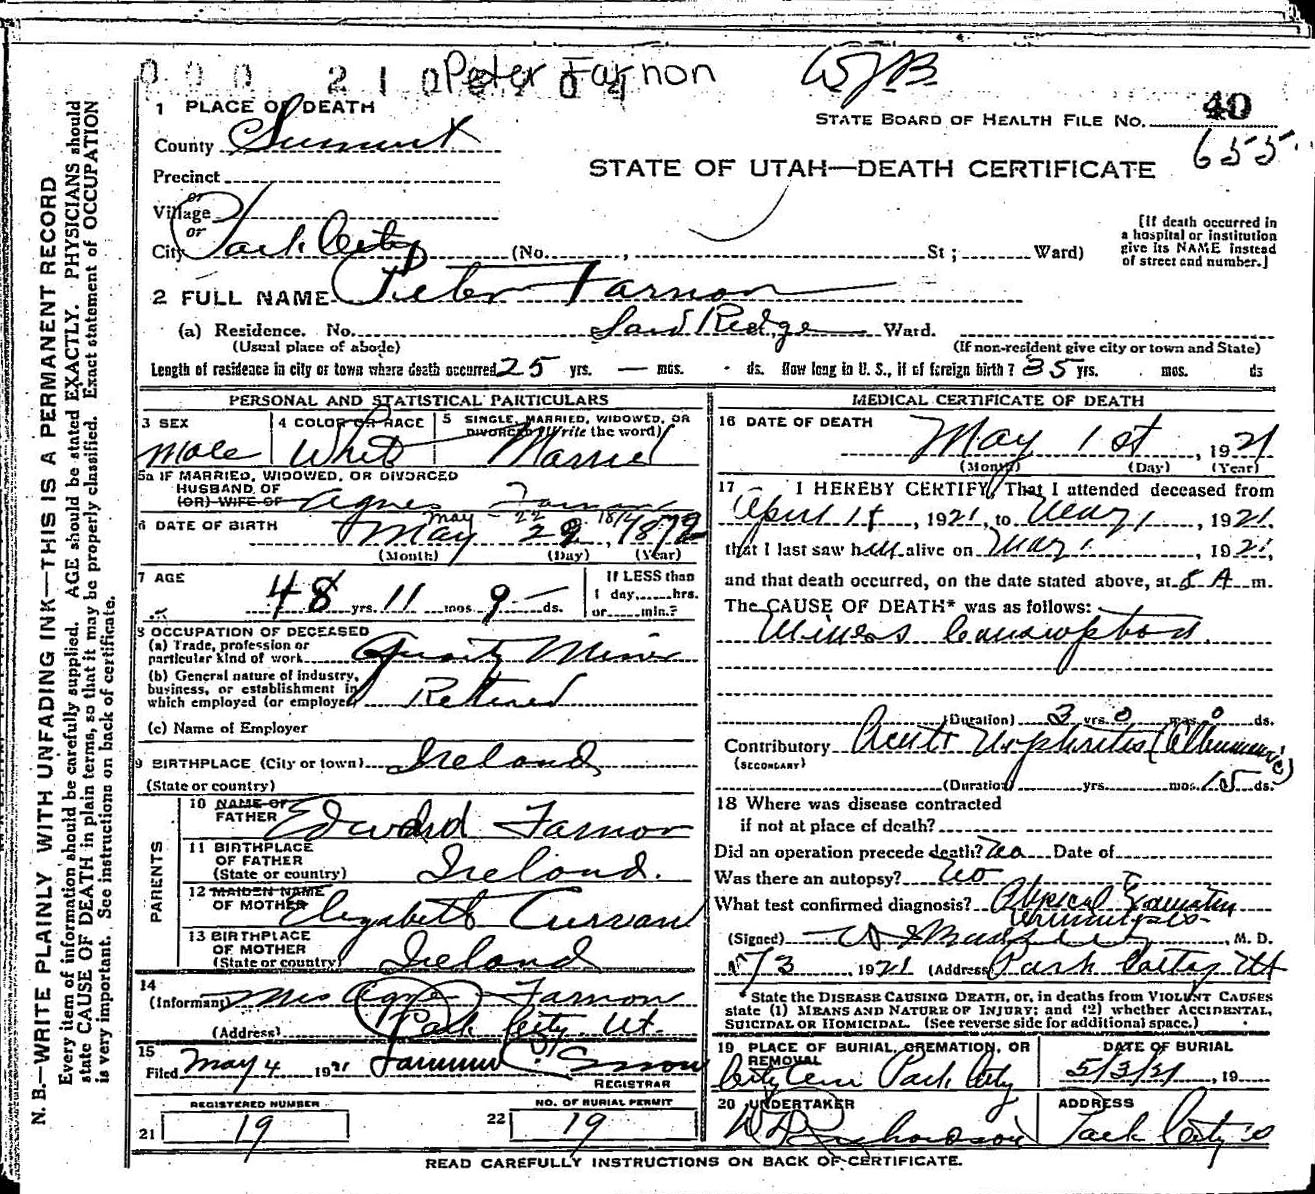 Peter Farnon
WJB
1 PLACE OF DEATH
STATE BOARD OF HEALTH FILE No. 40
County Summit
655
STATE OF UTAH—DEATH CERTIFICATE
Precinct
or
Village
or
City Park City (No. , St ; Ward)
[If death occurred in
a hospital or institution
give its NAME instead
of street and number.]
2 FULL NAME Peter Farnon
(a) Residence. No. Sand Ridge Ward.
(Usual place of abode) (If non-resident give city or town and State)
Length of residence in city or town where death occurred 25 yrs. — mos. ds. How long in U. S., if of foreign birth? 35 yrs. mos. ds
PERSONAL AND STATISTICAL PARTICULARS
3 SEX
Male
4 COLOR OR RACE
White
5 SINGLE, MARRIED, WIDOWED, OR
DIVORCED (Write the word)
Married
5a IF MARRIED, WIDOWED, OR DIVORCED
HUSBAND OF
(OR) WIFE OF Agnes Farnon
6 DATE OF BIRTH May 22 1872
(Month) (Day) (Year)
7 AGE
48 yrs. 11 mos. 9 ds.
If LESS than
1 day, hrs.
or min.?
8 OCCUPATION OF DECEASED
(a) Trade, profession or
particular kind of work Quartz Miner
(b) General nature of industry,
business, or establishment in
which employed (or employer) Retired
(c) Name of Employer
9 BIRTHPLACE (City or town) Ireland
(State or country)
PARENTS
10 NAME OF
FATHER Edward Farnon
11 BIRTHPLACE
OF FATHER
(State or country) Ireland.
12 MAIDEN NAME
OF MOTHER Elizabeth Curran
13 BIRTHPLACE
OF MOTHER
(State or country) Ireland
14
(Informant) Mrs Agnes Farnon
(Address) Park City, Ut.
15
Filed May 4 1921 Snow
REGISTRAR
REGISTERED NUMBER
21 19
NO. OF BURIAL PERMIT
22 19
MEDICAL CERTIFICATE OF DEATH
16 DATE OF DEATH
May 1st, 1921
(Month) (Day) (Year)
17 I HEREBY CERTIFY, That I attended deceased from
April 1st, 1921, to May 1, 1921,
that I last saw him alive on May 1, 1921,
and that death occurred, on the date stated above, at 5 A m.
The CAUSE OF DEATH* was as follows:
Miners Consumption.
(Duration) 3 yrs. 0 mos. 0 ds.
Contributory Acute Nephritis
(SECONDARY)
(Duration) yrs. mos. 15 ds.
18 Where was disease contracted
if not at place of death?
Did an operation precede death? No Date of
Was there an autopsy? No
What test confirmed diagnosis? Physical
(Signed) , M. D.
5/3, 1921 (Address) Park City Ut
* State the DISEASE CAUSING DEATH, or, in deaths from VIOLENT CAUSES
state (1) MEANS AND NATURE OF INJURY; and (2) whether ACCIDENTAL,
SUICIDAL or HOMICIDAL. (See reverse side for additional space.)
19 PLACE OF BURIAL, CREMATION, OR
REMOVAL
City Cem Park City
DATE OF BURIAL
5/3/21, 19
20 UNDERTAKER
W D Richardson
ADDRESS
Park City
READ CAREFULLY INSTRUCTIONS ON BACK OF CERTIFICATE.
N. B.—WRITE PLAINLY WITH UNFADING INK—THIS IS A PERMANENT RECORD
Every item of information should be carefully supplied. AGE should be stated EXACTLY. PHYSICIANS should
state CAUSE OF DEATH in plain terms, so that it may be properly classified. Exact statement of OCCUPATION
is very important. See instructions on back of certificate.